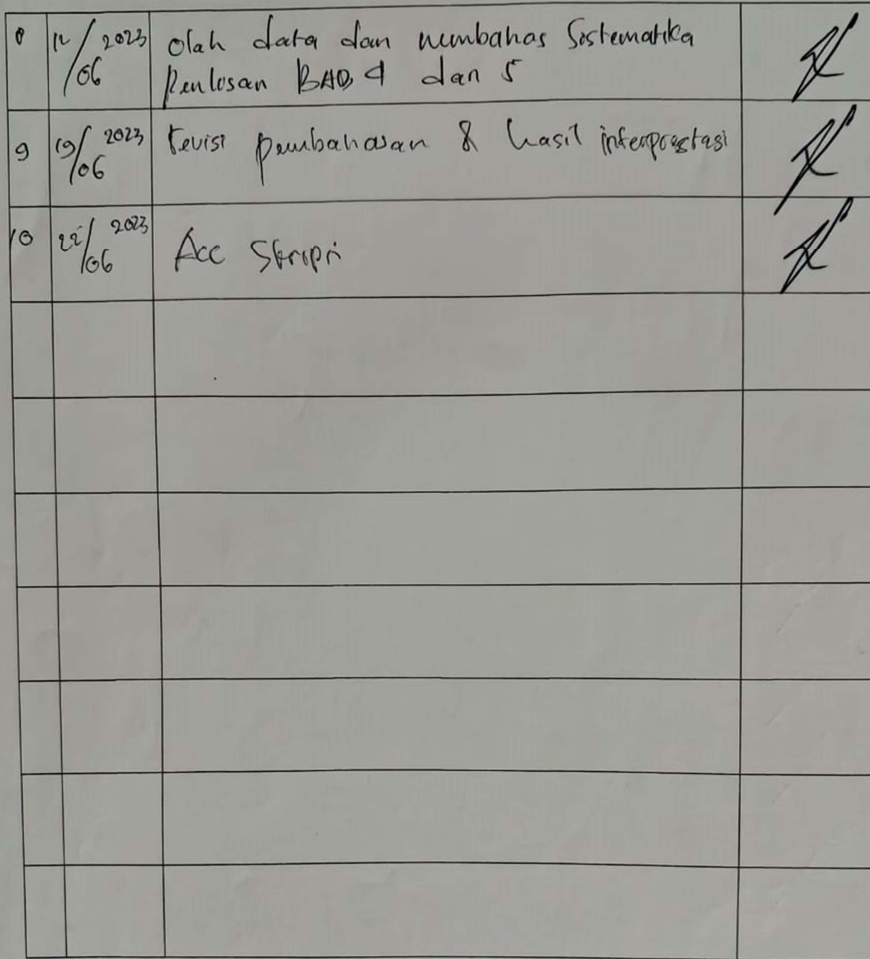 8 12/06 2023 Olah data dan membahas Sistematika
Penulisan BAB 4 dan 5
9 19/06 2023 Revisi pembahasan & hasil interprestasi
10 22/06 2023 Acc Skripsi